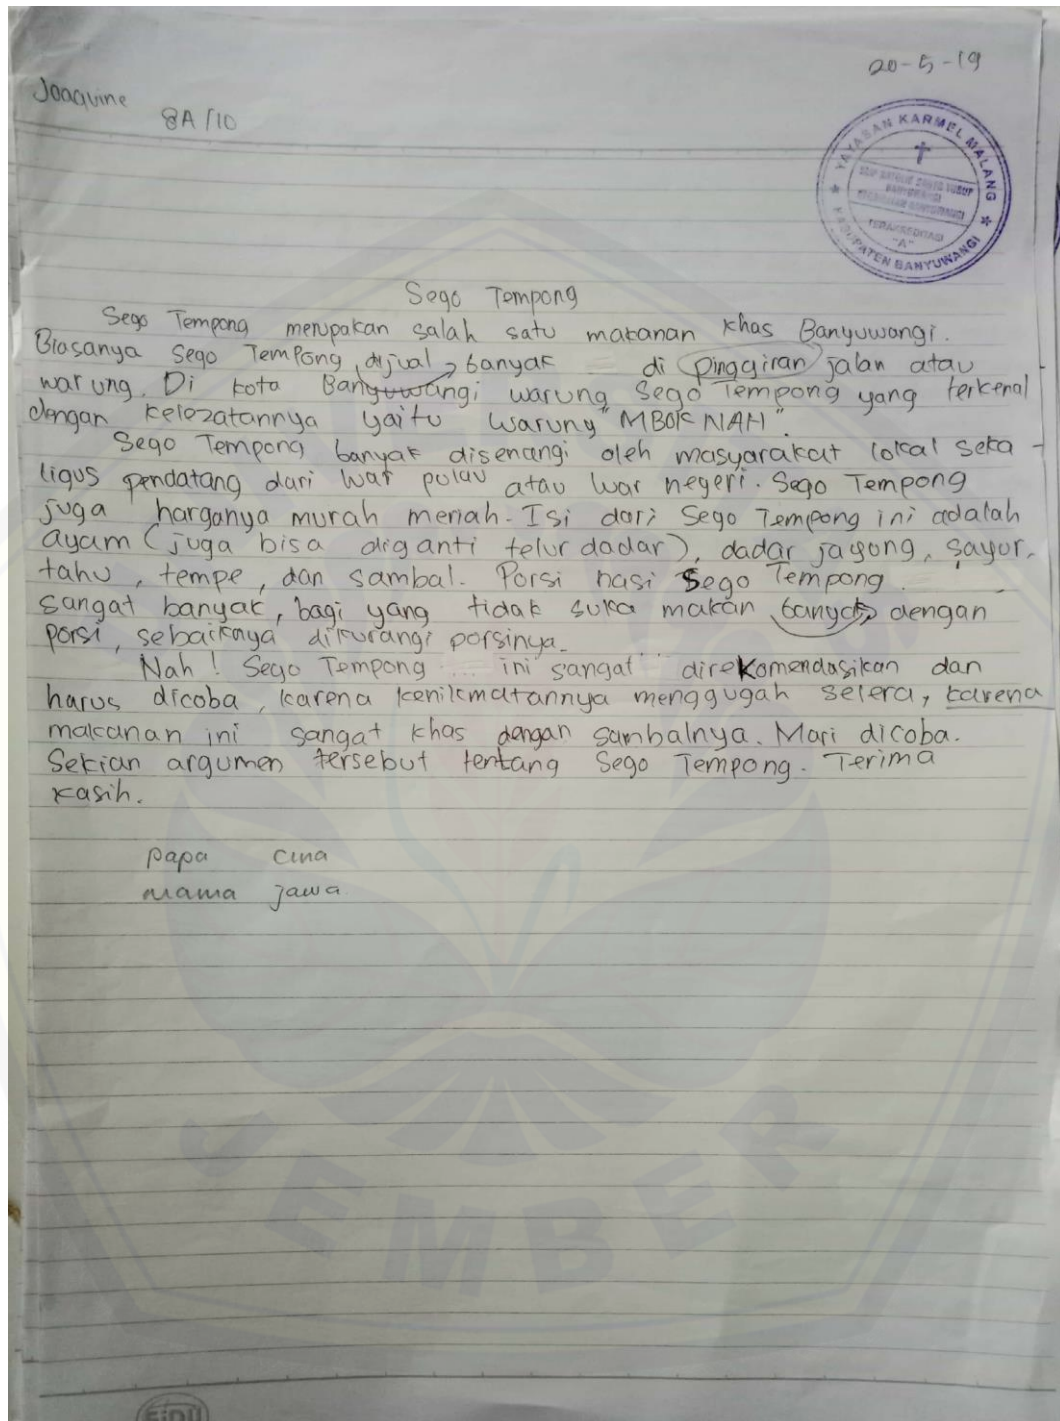 20-5-19
Joaquine
8A/10
YAYASAN KARMEL MALANG
KABUPATEN BANYUWANGI
TERAKREDITASI
"A"
Sego Tempong
Sego Tempong merupakan salah satu makanan khas Banyuwangi.
Biasanya Sego Tempong dijual banyak di pinggiran jalan atau
warung. Di kota Banyuwangi warung Sego Tempong yang terkenal
dengan kelezatannya yaitu warung "MBOK NAH".
Sego Tempong banyak disenangi oleh masyarakat lokal seka-
ligus pendatang dari luar pulau atau luar negeri. Sego Tempong
juga harganya murah meriah. Isi dari Sego Tempong ini adalah
ayam (juga bisa diganti telur dadar), dadar jagong, sayur,
tahu, tempe, dan sambal. Porsi nasi Sego Tempong
sangat banyak, bagi yang tidak suka makan banyak dengan
porsi, sebaiknya dikurangi porsinya.
Nah! Sego Tempong ini sangat direkomendasikan dan
harus dicoba, karena kenikmatannya menggugah selera, karena
makanan ini sangat khas dengan sambalnya. Mari dicoba.
Sekian argumen tersebut tentang Sego Tempong. Terima
kasih.
papa cina
mama jawa
JEMBER
SiDU